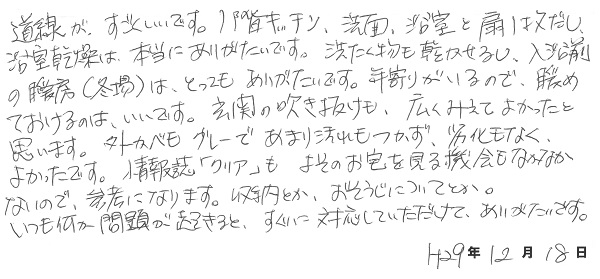 導線が、すごくいいです。1階キッチン、洗面、浴室と扇状だし、
浴室乾燥は、本当にありがたいです。洗たく物も乾かせるし、入浴前
の暖房(冬場)は、とってもありがたいです。年寄りがいるので、暖め
ておけるのは、いいです。玄関の吹き抜けも、広くみえてよかったと
思います。外カベもグレーであまり汚れもつかず、劣化もなく、
よかったです。情報誌「クリア」も よそのお宅を見る機会もなかなか
ないので、参考になります。収納とか、おそうじについてとか。
いつも何か問題が起きると、すぐに対応していただけて、ありがたいです。
H29年12月18日